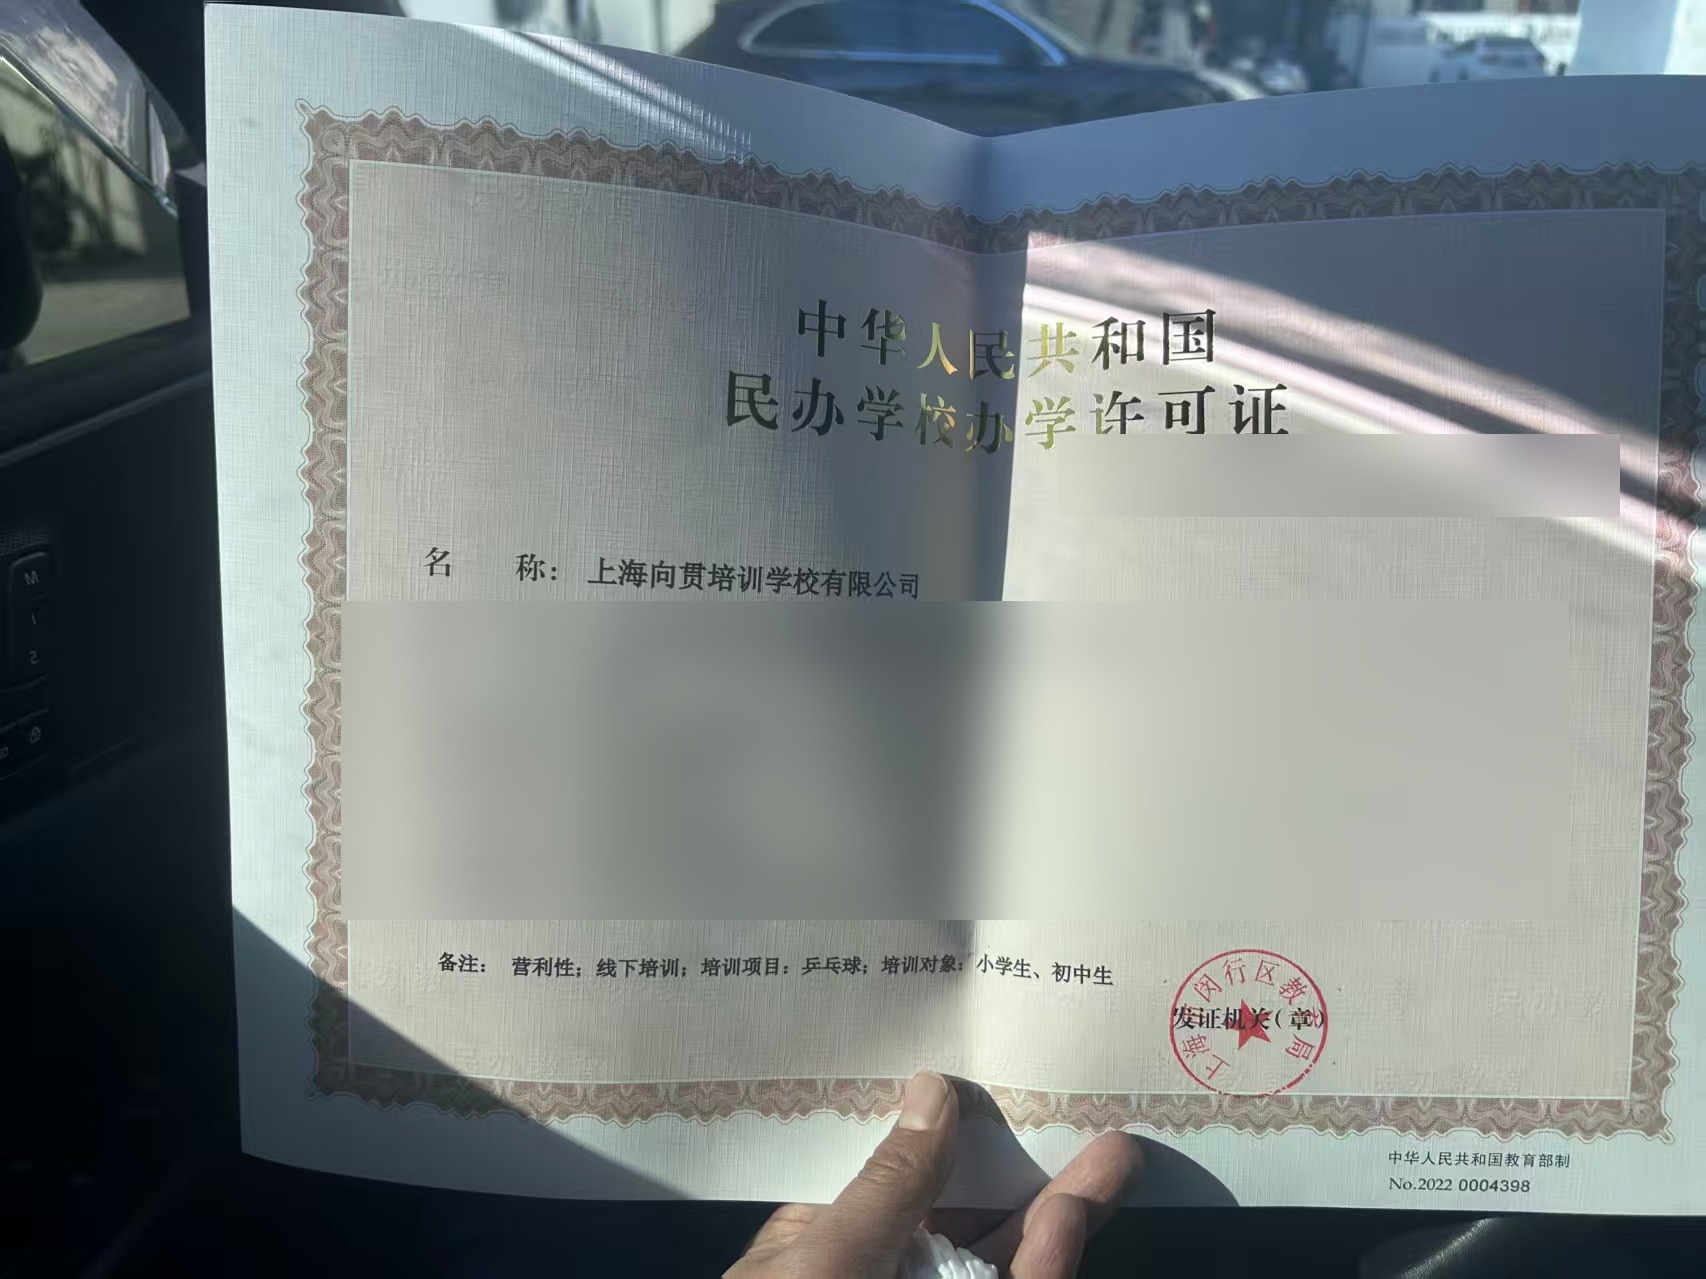 中华人民共和国
民办学校办学许可证
名 称： 上海向贯培训学校有限公司
备注： 营利性；线下培训；培训项目：乒乓球；培训对象：小学生、初中生
上海市闵行区教育局
发证机关（章）
中华人民共和国教育部制
No.2022 0004398
M
1
2